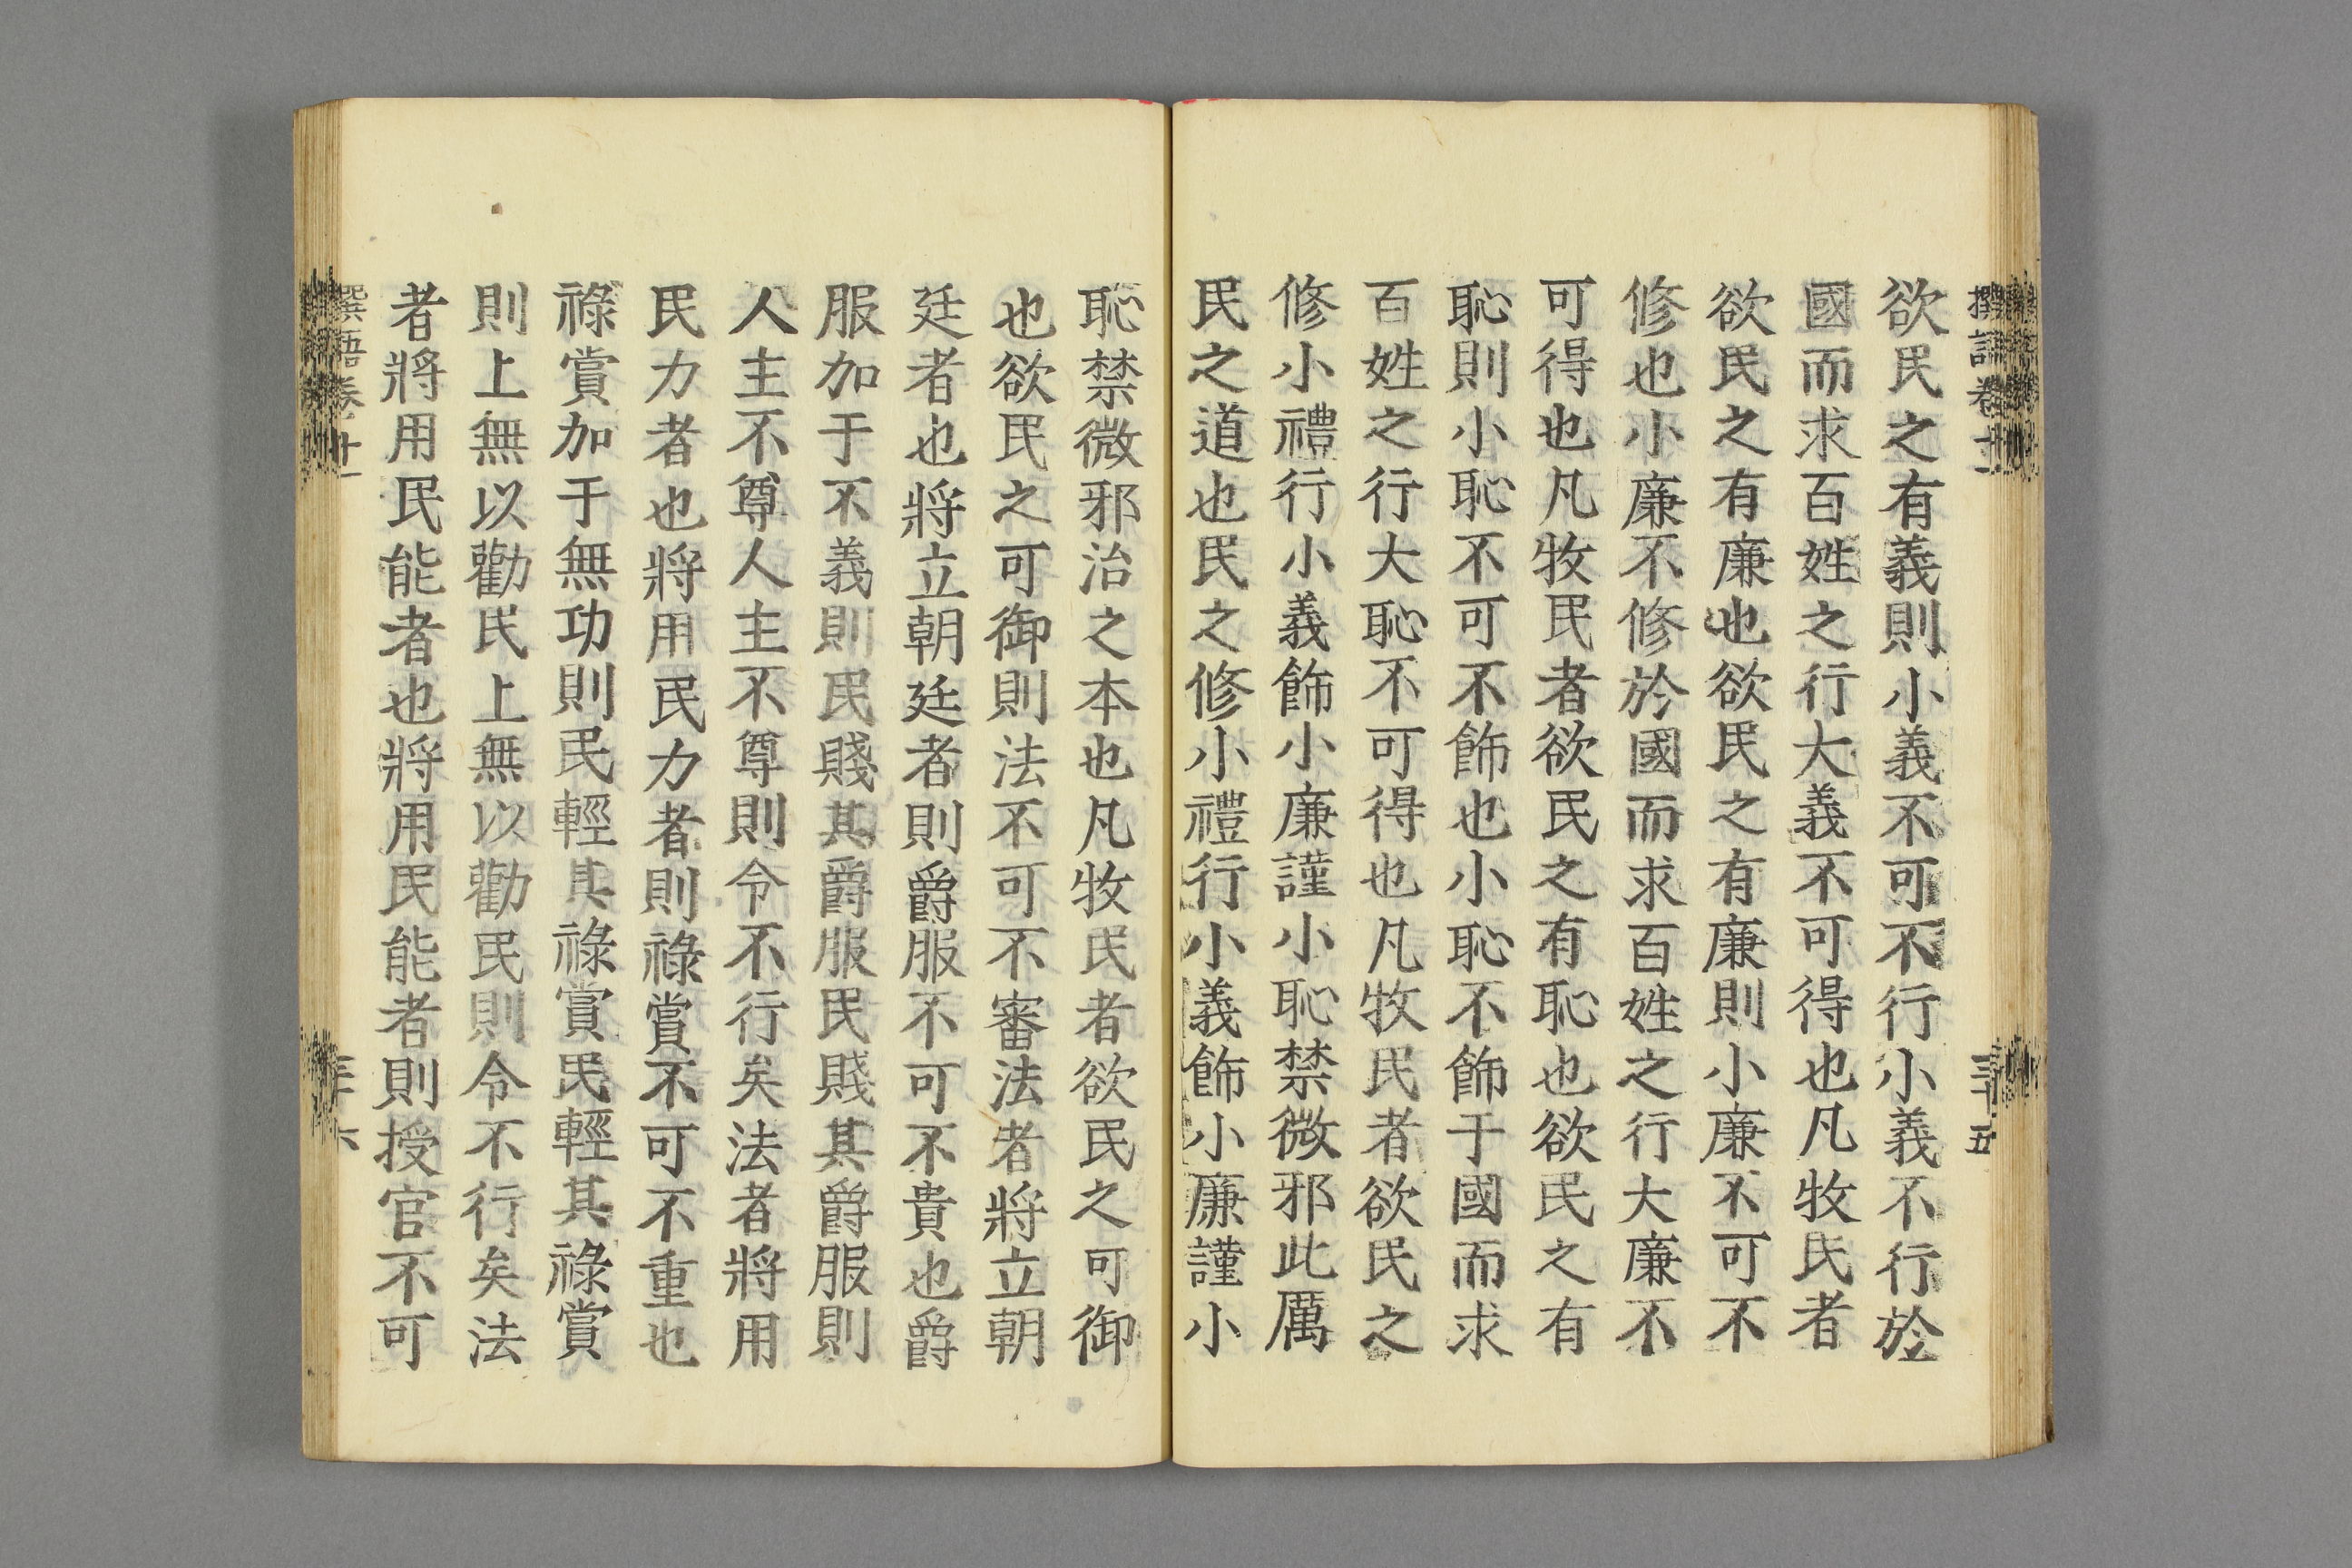 撰語卷十一
三十五
欲民之有義則小義不可不行小義不行於
國而求百姓之行大義不可得也凡牧民者
欲民之有廉也欲民之有廉則小廉不可不
修也小廉不修於國而求百姓之行大廉不
可得也凡牧民者欲民之有恥也欲民之有
恥則小恥不可不飾也小恥不飾于國而求
百姓之行大恥不可得也凡牧民者欲民之
修小禮行小義飾小廉謹小恥禁微邪此厲
民之道也民之修小禮行小義飾小廉謹小
恥禁微邪治之本也凡牧民者欲民之可御
也欲民之可御則法不可不審法者將立朝
廷者也將立朝廷者則爵服不可不貴也爵
服加于不義則民賤其爵服民賤其爵服則
人主不尊人主不尊則令不行矣法者將用
民力者也將用民力者則祿賞不可不重也
祿賞加于無功則民輕其祿賞民輕其祿賞
則上無以勸民上無以勸民則令不行矣法
者將用民能者也將用民能者則授官不可
語卷十一